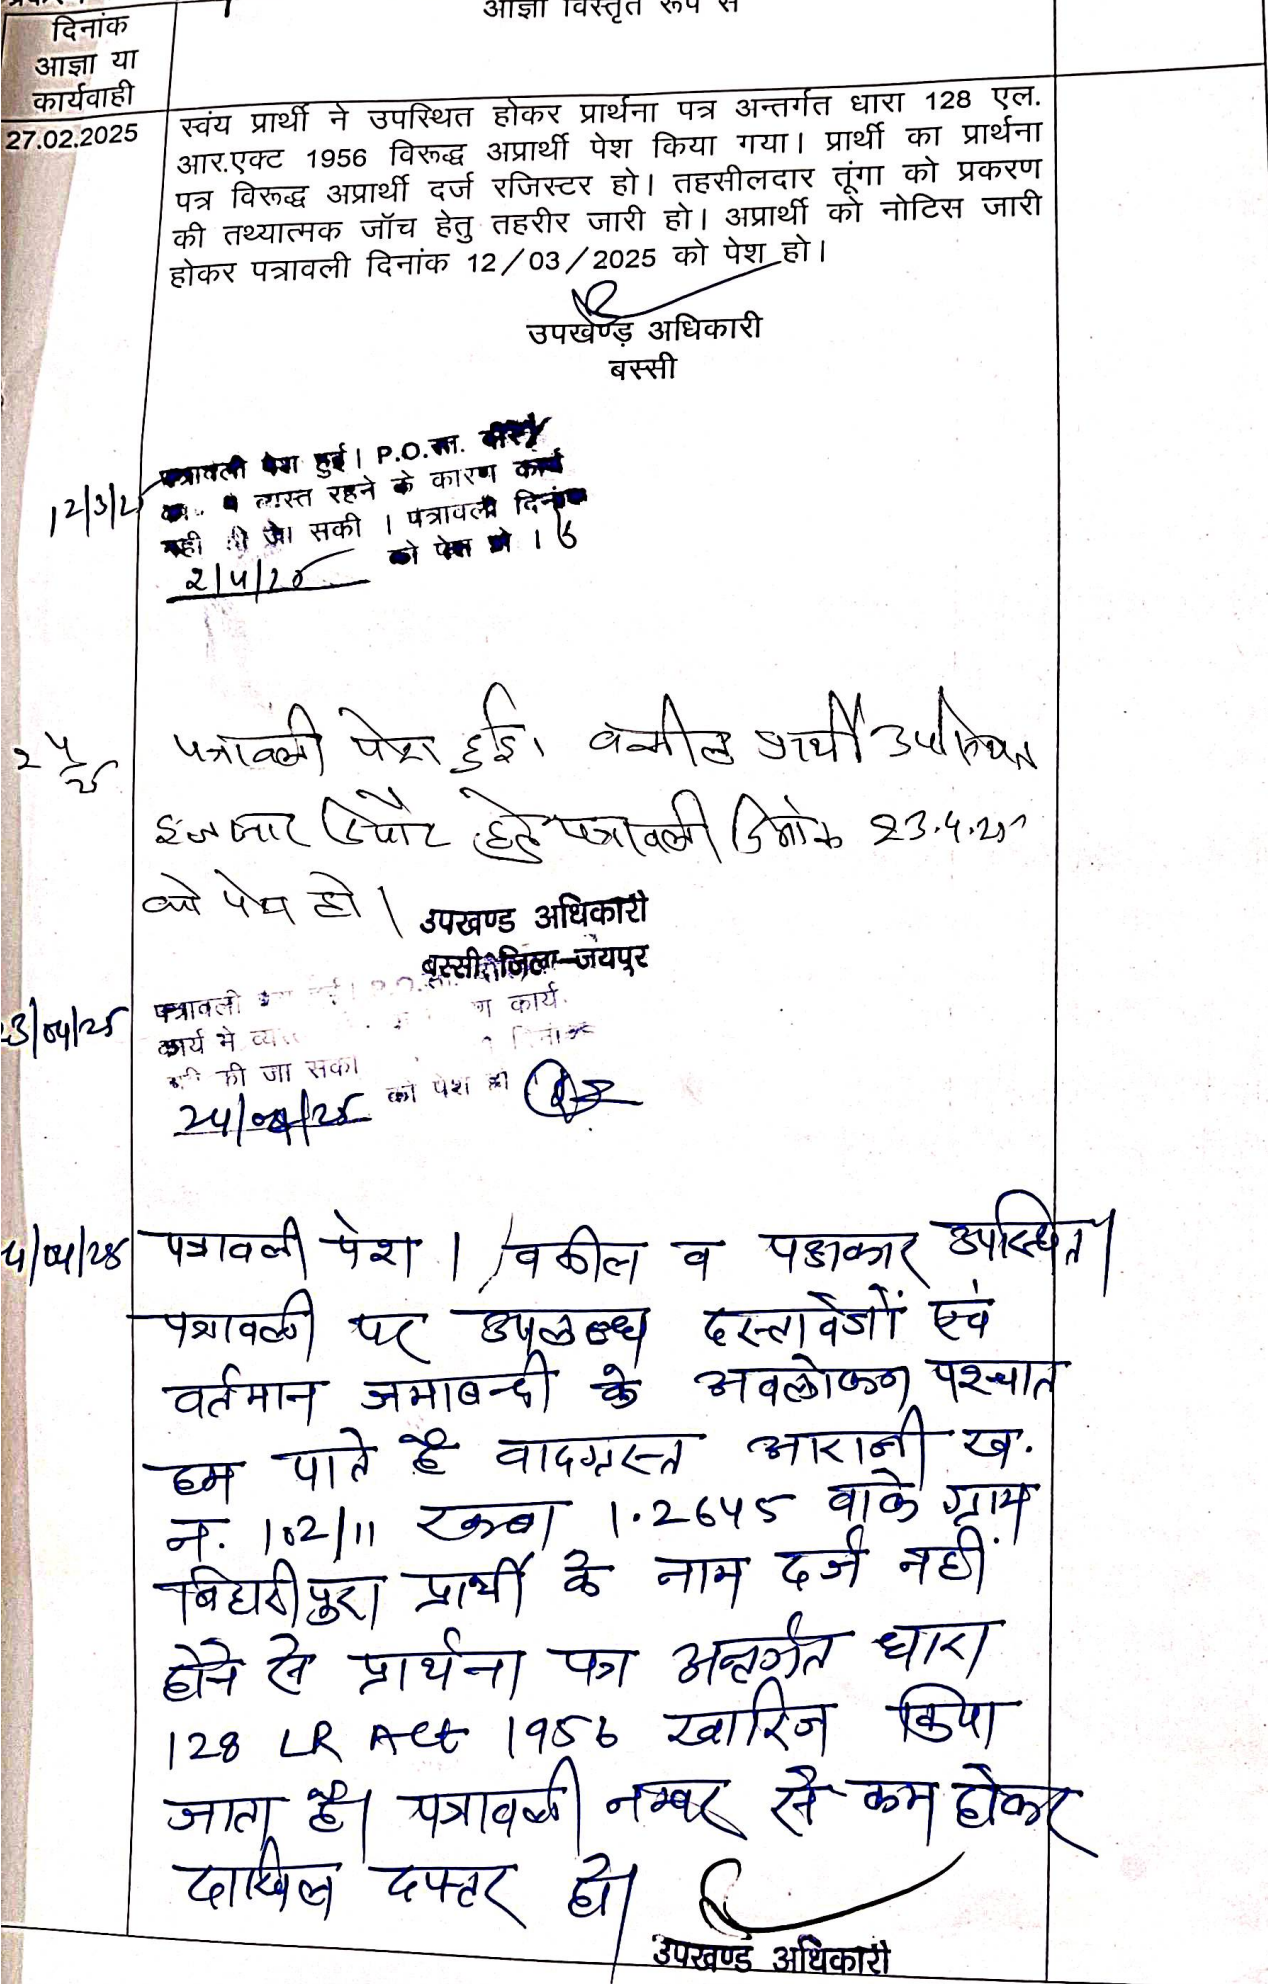 आज्ञा विस्तृत रूप से
दिनांक
आज्ञा या
कार्यवाही
27.02.2025
स्वंय प्रार्थी ने उपस्थित होकर प्रार्थना पत्र अन्तर्गत धारा 128 एल.
आर.एक्ट 1956 विरूद्ध अप्रार्थी पेश किया गया। प्रार्थी का प्रार्थना
पत्र विरूद्ध अप्रार्थी दर्ज रजिस्टर हो। तहसीलदार तूंगा को प्रकरण
की तथ्यात्मक जॉच हेतु तहरीर जारी हो। अप्रार्थी को नोटिस जारी
होकर पत्रावली दिनांक 12/03/2025 को पेश हो।
उपखण्ड़ अधिकारी
बस्सी
12/3/2
पत्रावली पेश हुई। P.O.सा.
व्यस्त रहने के कारण कार्य
नही जा सकी । पत्रावली दिनांक
2/4/25 को पेश हो ।
2 4/25
पत्रावली पेश हुई। वकील प्रार्थी उपस्थित
इन्तजार रिपोर्ट हेतु पत्रावली दिनांक 23.4.25
को पेश हो।
उपखण्ड अधिकारी
बस्सी जिला-जयपुर
23/04/25
पत्रावली P.O.सा.
कार्य मे कार्य
की जा सकी
24/04/25 को पेश हो
4/04/25
पत्रावली पेश। वकील व पक्षकार उपस्थित।
पत्रावली पर उपलब्ध दस्तावेजों एवं
वर्तमान जमाबन्दी के अवलोकन पश्चात
हम पाते है वादग्रस्त आराजी ख.
न. 102/11 रकबा 1.2645 वाके ग्राम
बिहारीपुरा प्रार्थी के नाम दर्ज नहीं
होने से प्रार्थना पत्र अन्तर्गत धारा
128 LR Act 1956 खारिज किया
जाता है। पत्रावली नम्बर से कम होकर
दाखिल दफ्तर हो।
उपखण्ड अधिकारी